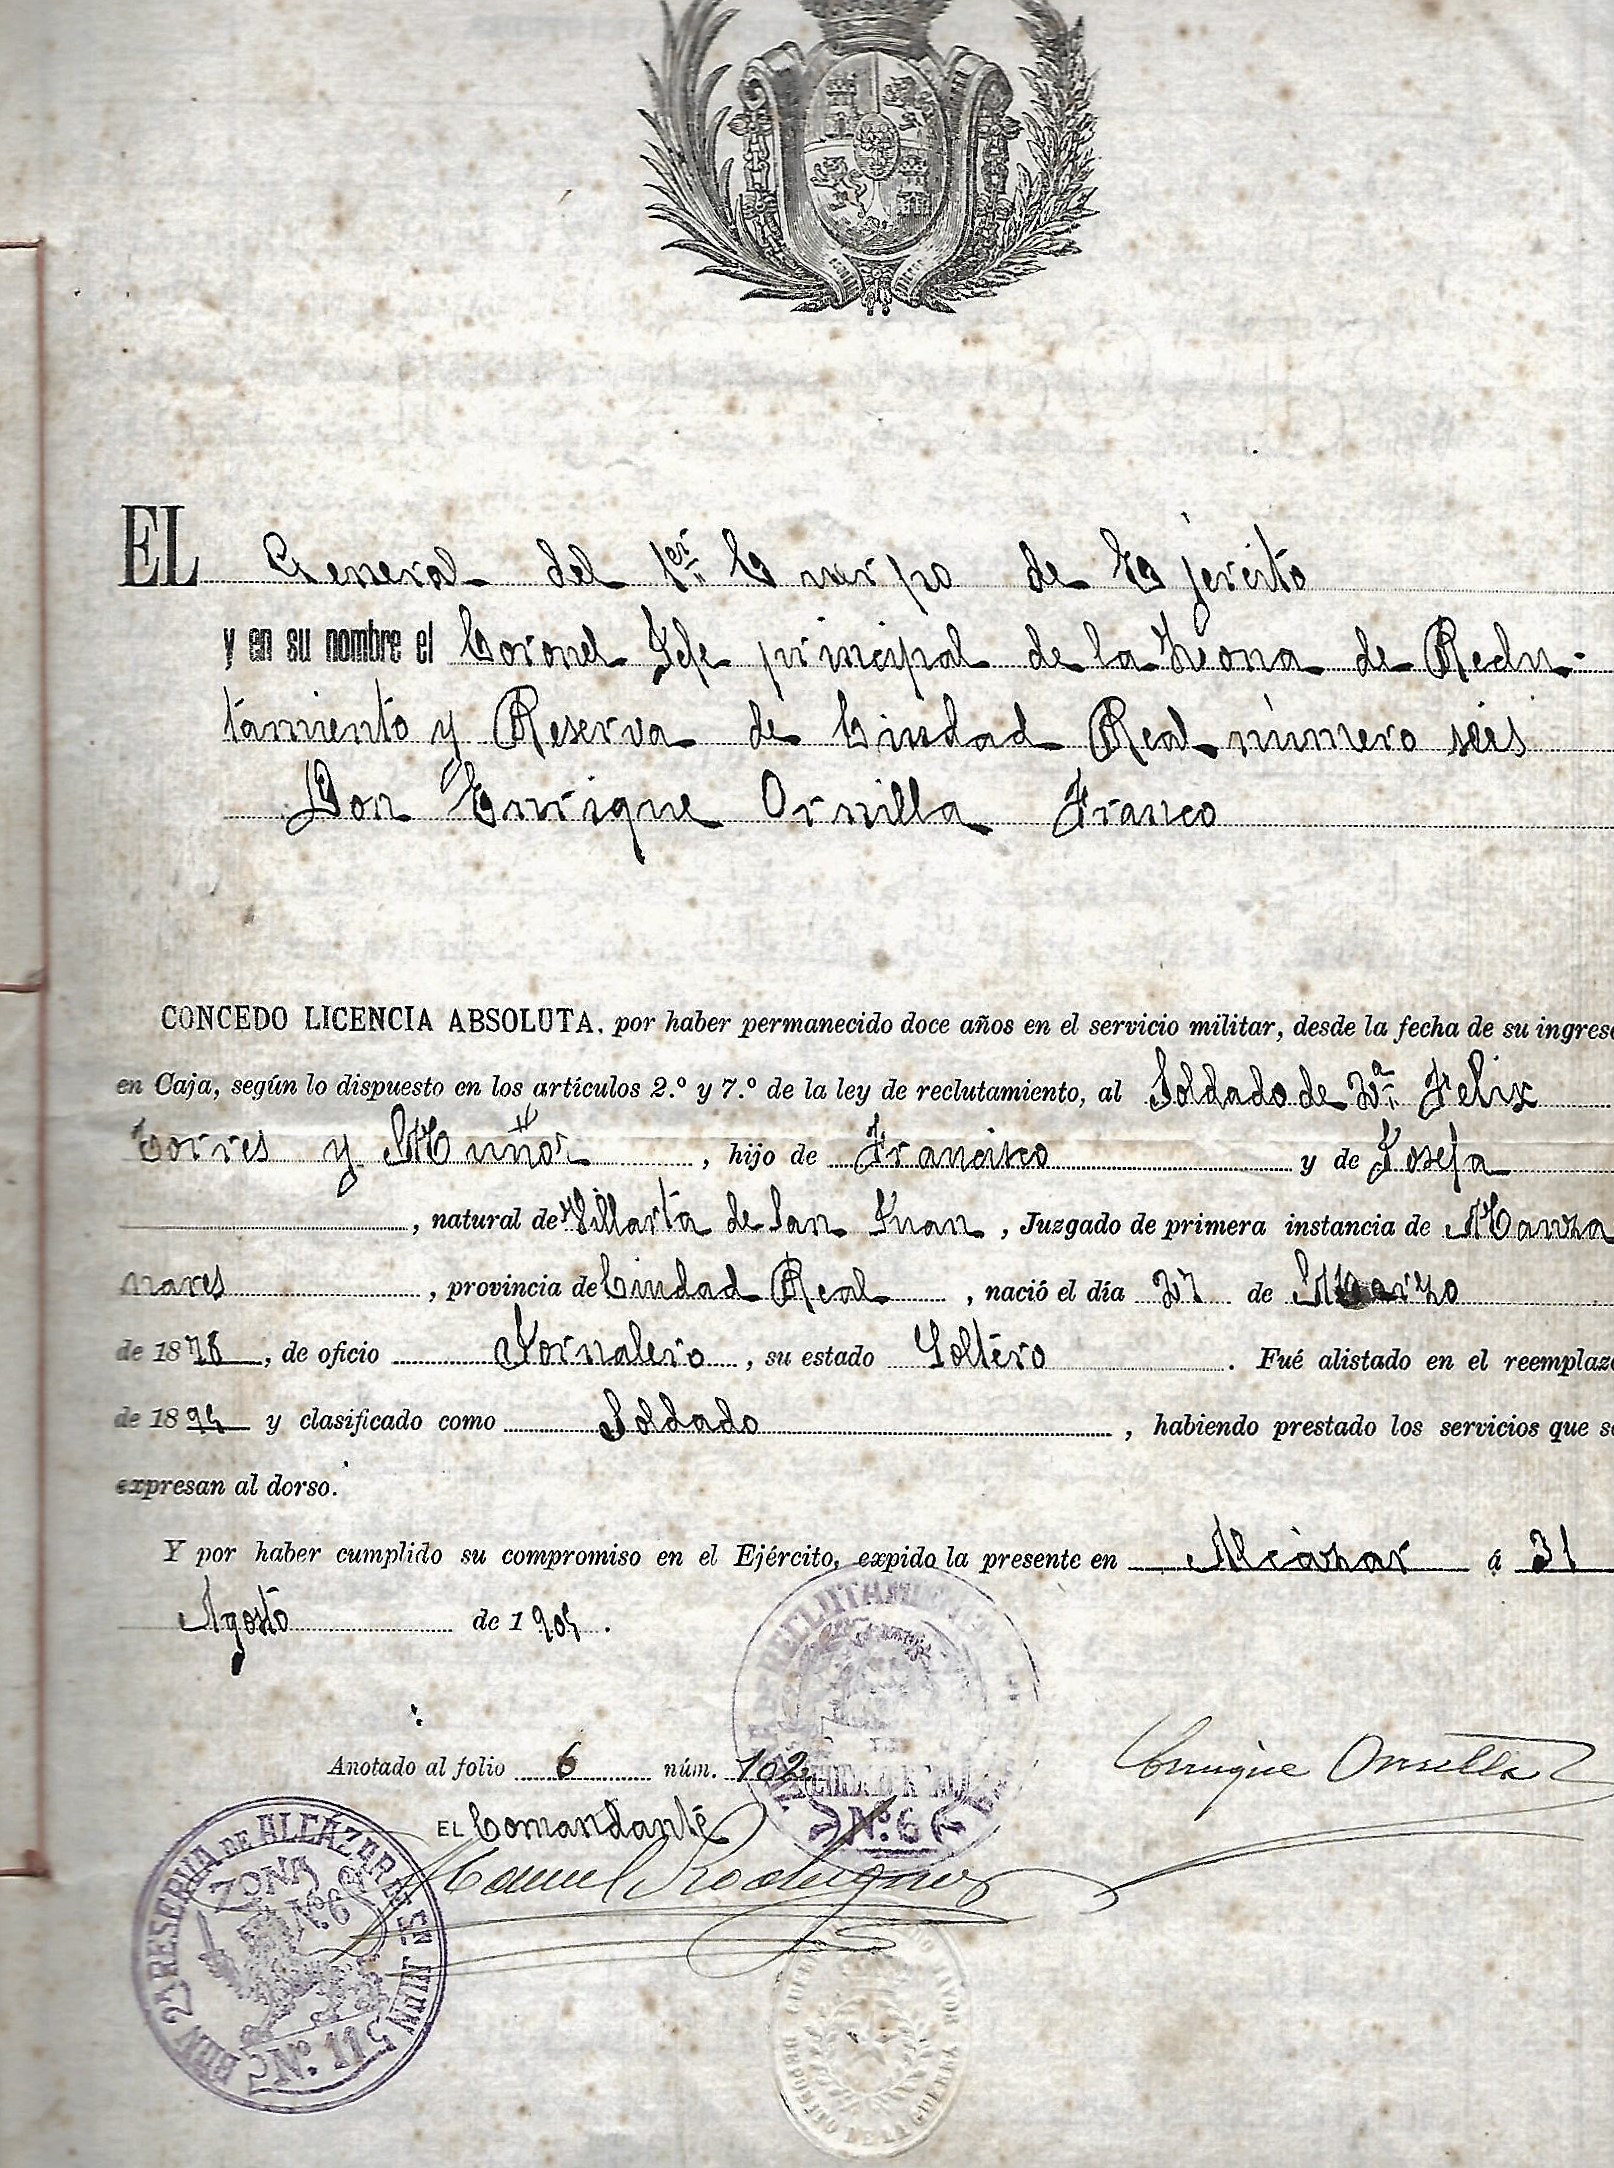 EL General del 1er Cuerpo de Ejército
y en su nombre el Coronel Jefe principal de la Zona de Reclu-
tamiento y Reserva de Ciudad Real número seis
Don Enrique Ornilla Franco
CONCEDO LICENCIA ABSOLUTA, por haber permanecido doce años en el servicio militar, desde la fecha de su ingreso
en Caja, según lo dispuesto en los artículos 2.º y 7.º de la ley de reclutamiento, al Soldado de 2ª Felix
Torres y Muñoz, hijo de Francisco y de Josefa
, natural de Villarta de San Juan, Juzgado de primera instancia de Manza
nares, provincia de Ciudad Real, nació el día 27 de Marzo
de 18, de oficio Jornalero, su estado Soltero. Fué alistado en el reemplazo
de 18 y clasificado como Soldado, habiendo prestado los servicios que se
expresan al dorso.
Y por haber cumplido su compromiso en el Ejército, expido la presente en Alcázar á 31
Agosto de 190
Anotado al folio 6 núm. 102
EL Comandante
Enrique Ornilla
Manuel Rodriguez
RECLUTAMIENTO
CIUDAD REAL
Nº 6
BÓN 2ª RESERVA DE ALCÁZAR DE SN JUAN
ZONA Nº 6
Nº 115
DEPOSITO DE LA GUERRA